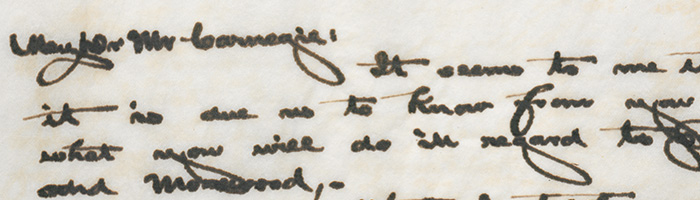 Mr Carnegie:
It seems to me
it is due us to know from you
what you will do in regard to
and Monewood,-